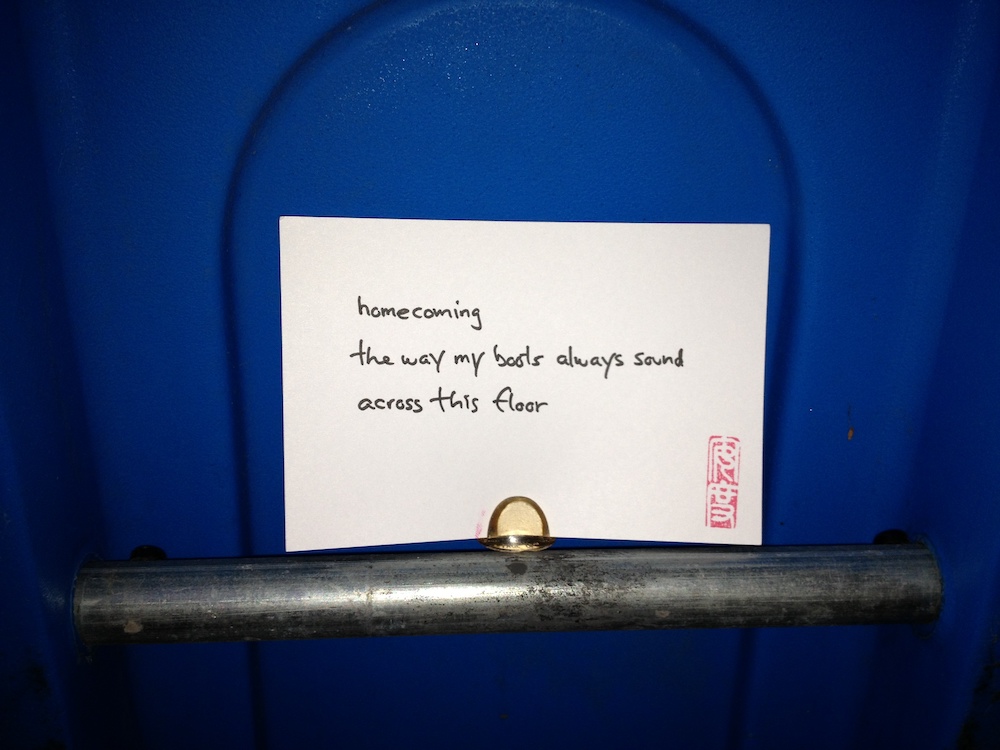 homecoming
the way my boots always sound
across this floor